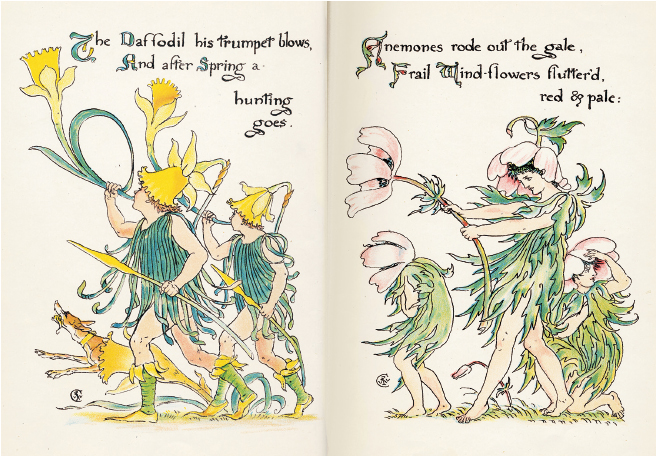 The Daffodil his trumpet blows,
And after Spring a
hunting
goes.
Anemones rode out the gale,
Frail Wind-flowers flutter'd,
red & pale: